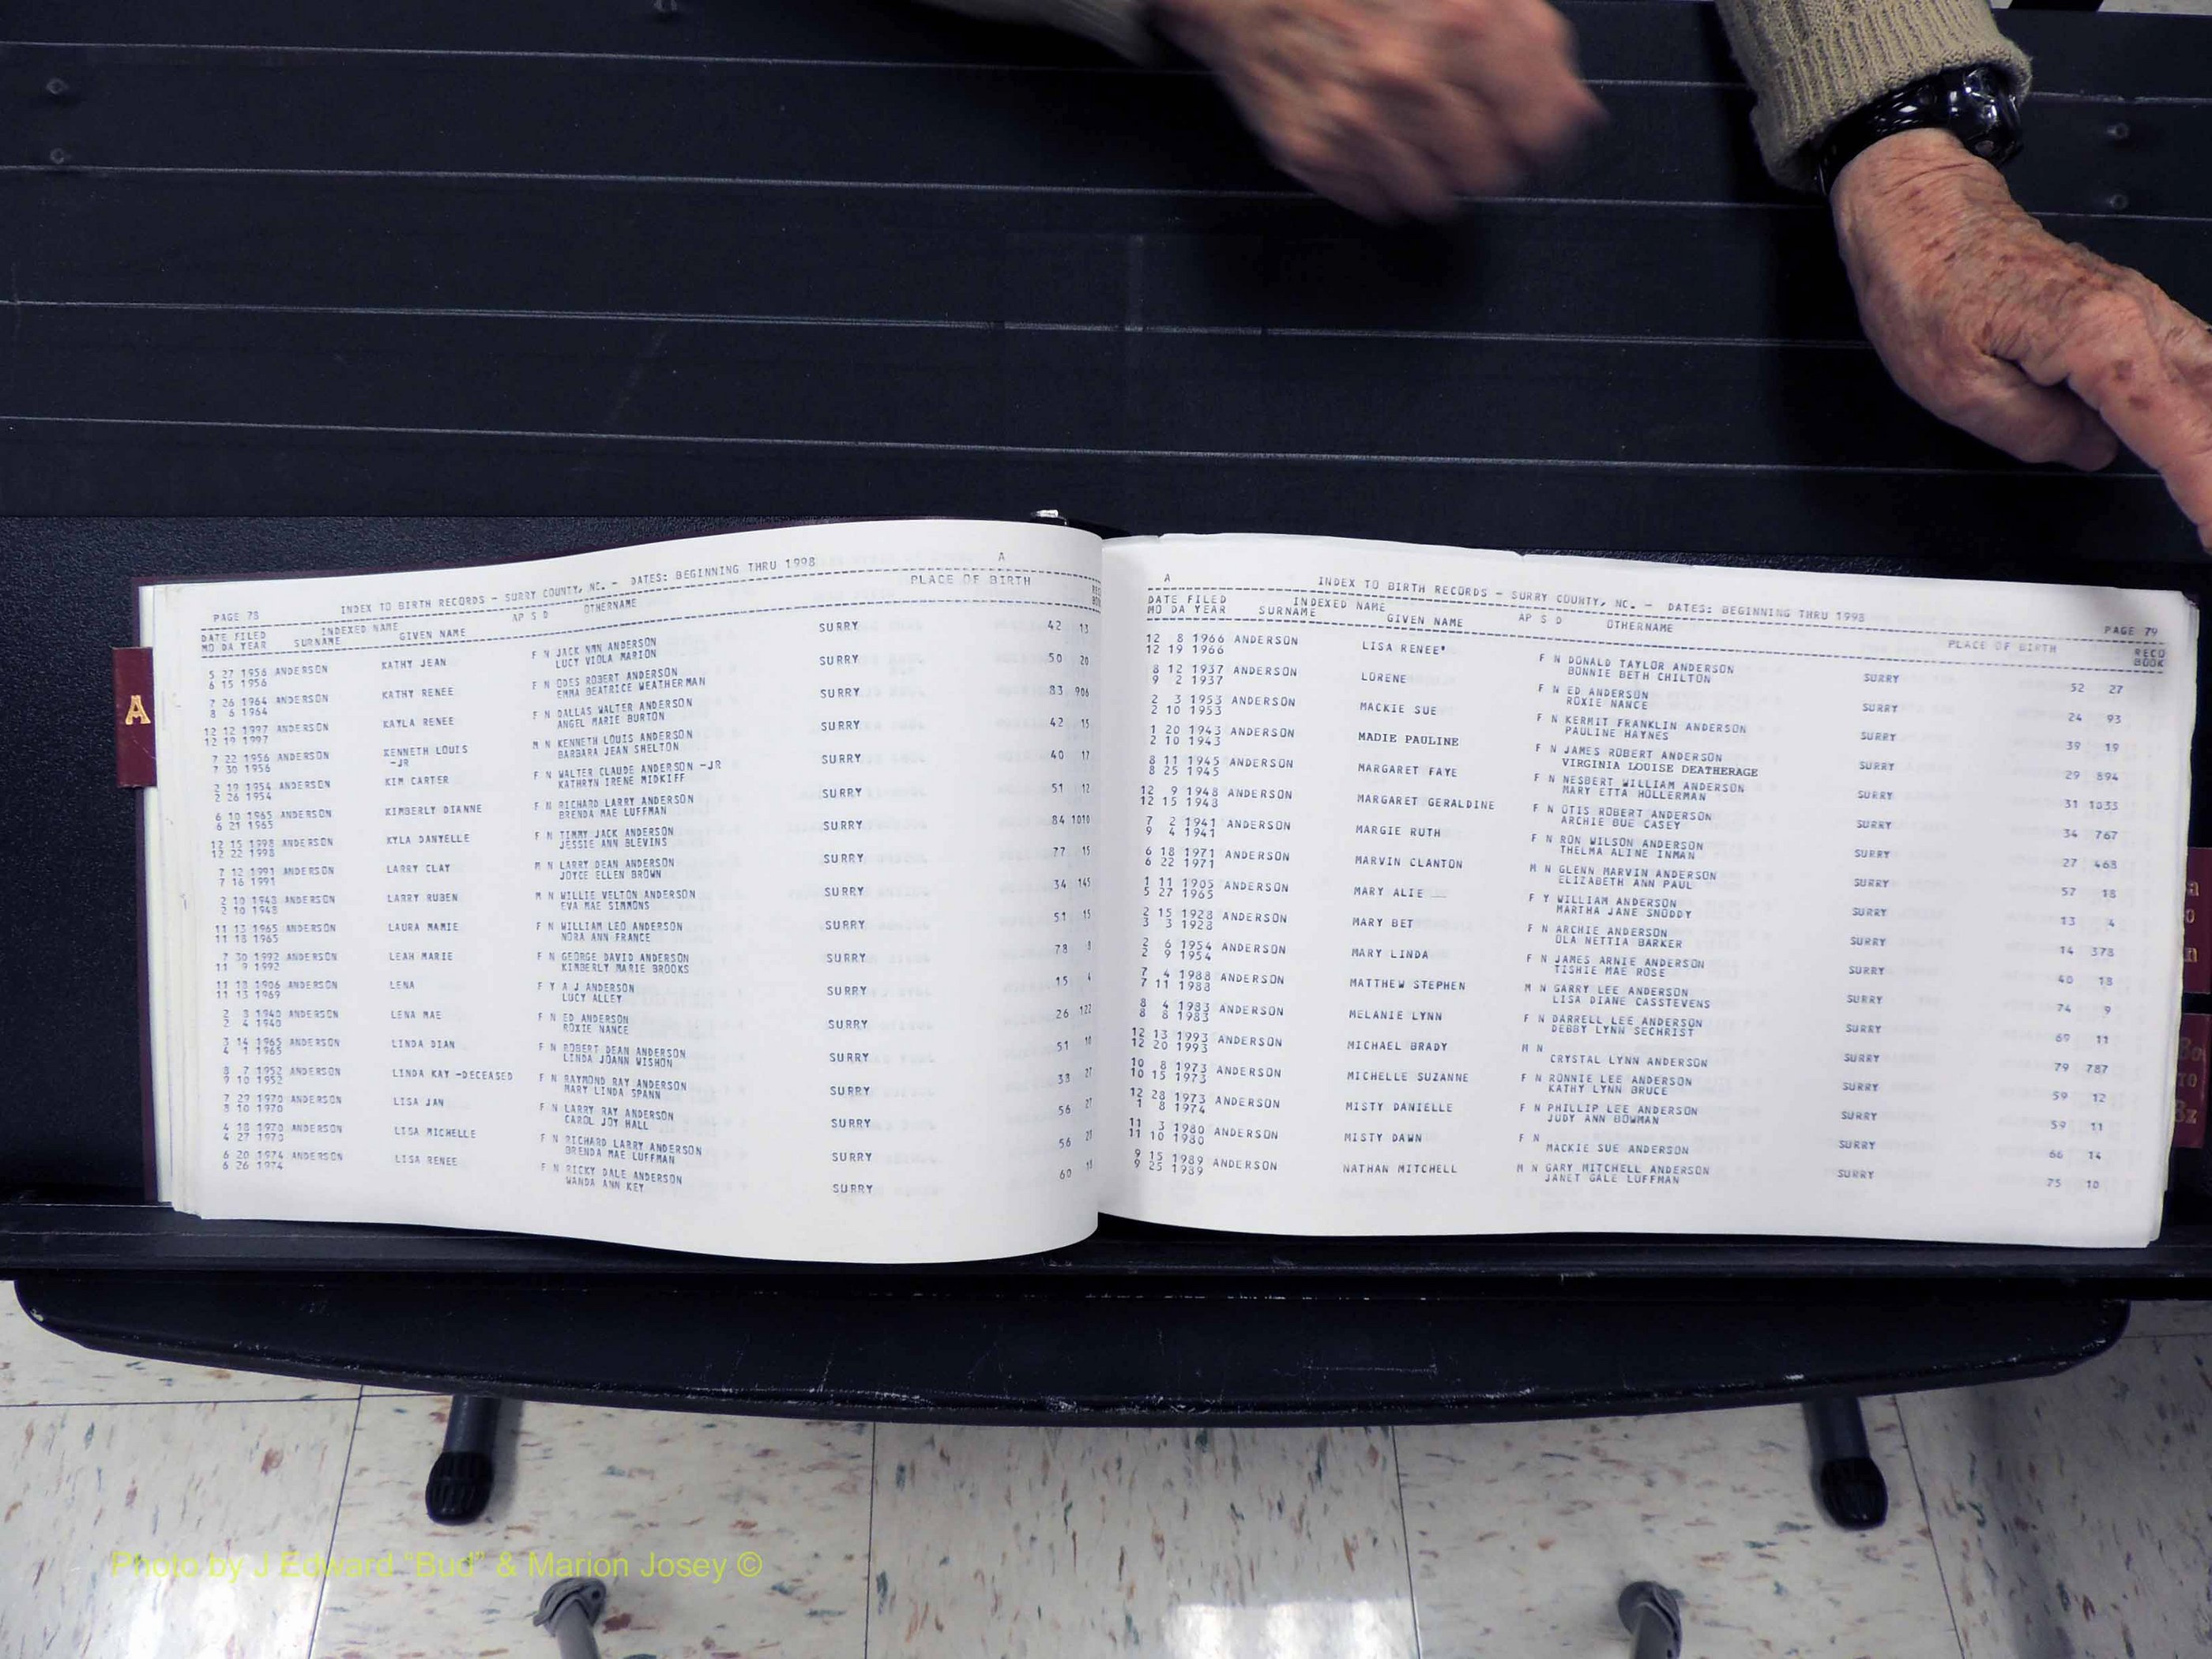 A
PAGE 78 INDEX TO BIRTH RECORDS - SURRY COUNTY, NC. - DATES: BEGINNING THRU 1998 A
DATE FILED INDEXED NAME AP S D OTHERNAME PLACE OF BIRTH
MO DA YEAR SURNAME GIVEN NAME
5 27 1956 ANDERSON KATHY JEAN F N JACK NMN ANDERSON SURRY 42 13
6 15 1956 LUCY VIOLA MARION
7 26 1964 ANDERSON KATHY RENEE F N ODES ROBERT ANDERSON SURRY 50 20
8 6 1964 EMMA BEATRICE WEATHERMAN
12 12 1997 ANDERSON KAYLA RENEE F N DALLAS WALTER ANDERSON SURRY 83 906
12 19 1997 ANGEL MARIE BURTON
7 22 1956 ANDERSON KENNETH LOUIS M N KENNETH LOUIS ANDERSON SURRY 42 15
7 30 1956 -JR BARBARA JEAN SHELTON
2 19 1954 ANDERSON KIM CARTER F N WALTER CLAUDE ANDERSON -JR SURRY 40 17
2 26 1954 KATHRYN IRENE MIDKIFF
6 10 1965 ANDERSON KIMBERLY DIANNE F N RICHARD LARRY ANDERSON SURRY 51 12
6 21 1965 BRENDA MAE LUFFMAN
12 15 1998 ANDERSON KYLA DANYELLE F N TIMMY JACK ANDERSON SURRY 84 1010
12 22 1998 JESSIE ANN BLEVINS
7 12 1991 ANDERSON LARRY CLAY M N LARRY DEAN ANDERSON SURRY 77 15
7 16 1991 JOYCE ELLEN BROWN
2 10 1948 ANDERSON LARRY RUBEN M N WILLIE VELTON ANDERSON SURRY 34 145
2 10 1948 EVA MAE SIMMONS
11 13 1965 ANDERSON LAURA MAMIE F N WILLIAM LEO ANDERSON SURRY 51 15
11 18 1965 NORA ANN FRANCE
7 30 1992 ANDERSON LEAH MARIE F N GEORGE DAVID ANDERSON SURRY 78
11 9 1992 KIMBERLY MARIE BROOKS
11 18 1906 ANDERSON LENA F Y A J ANDERSON SURRY 15
11 13 1969 LUCY ALLEY
2 3 1940 ANDERSON LENA MAE F N ED ANDERSON SURRY 26 122
2 4 1940 ROXIE NANCE
3 14 1965 ANDERSON LINDA DIAN F N ROBERT DEAN ANDERSON SURRY 51 10
4 1 1965 LINDA JOANN WISHON
8 7 1952 ANDERSON LINDA KAY -DECEASED F N RAYMOND RAY ANDERSON SURRY 38
9 10 1952 MARY LINDA SPANN
7 29 1970 ANDERSON LISA JAN F N LARRY RAY ANDERSON SURRY 56
8 10 1970 CAROL JOY HALL
4 18 1970 ANDERSON LISA MICHELLE F N RICHARD LARRY ANDERSON SURRY 56
4 27 1970 BRENDA MAE LUFFMAN
6 20 1974 ANDERSON LISA RENEE F N RICKY DALE ANDERSON SURRY 60
6 26 1974 WANDA ANN KEY
A INDEX TO BIRTH RECORDS - SURRY COUNTY, NC. - DATES: BEGINNING THRU 1998 PAGE 79
DATE FILED INDEXED NAME AP S D OTHERNAME PLACE OF BIRTH RECO
MO DA YEAR SURNAME GIVEN NAME BOOK
12 8 1966 ANDERSON LISA RENEE' F N DONALD TAYLOR ANDERSON SURRY 52 27
12 19 1966 BONNIE BETH CHILTON
8 12 1937 ANDERSON LORENE F N ED ANDERSON SURRY 24 93
9 2 1937 ROXIE NANCE
2 3 1953 ANDERSON MACKIE SUE F N KERMIT FRANKLIN ANDERSON SURRY 39 19
2 10 1953 PAULINE HAYNES
1 20 1943 ANDERSON MADIE PAULINE F N JAMES ROBERT ANDERSON SURRY 29 894
2 10 1943 VIRGINIA LOUISE DEATHERAGE
8 11 1945 ANDERSON MARGARET FAYE F N NESBERT WILLIAM ANDERSON SURRY 31 1033
8 25 1945 MARY ETTA HOLLERMAN
12 9 1948 ANDERSON MARGARET GERALDINE F N OTIS ROBERT ANDERSON SURRY 34 767
12 15 1948 ARCHIE BUE CASEY
7 2 1941 ANDERSON MARGIE RUTH F N RON WILSON ANDERSON SURRY 27 468
9 4 1941 THELMA ALINE INMAN
6 18 1971 ANDERSON MARVIN CLANTON M N GLENN MARVIN ANDERSON SURRY 57 18
6 22 1971 ELIZABETH ANN PAUL
1 11 1905 ANDERSON MARY ALIE F Y WILLIAM ANDERSON SURRY 13 4
5 27 1965 MARTHA JANE SNODDY
2 15 1928 ANDERSON MARY BET F N ARCHIE ANDERSON SURRY 14 378
3 3 1928 OLA NETTIA BARKER
2 6 1954 ANDERSON MARY LINDA F N JAMES ARNIE ANDERSON SURRY 40 18
2 9 1954 TISHIE MAE ROSE
7 4 1988 ANDERSON MATTHEW STEPHEN M N GARRY LEE ANDERSON SURRY 74 9
7 11 1988 LISA DIANE CASSTEVENS
8 4 1983 ANDERSON MELANIE LYNN F N DARRELL LEE ANDERSON SURRY 69 11
8 8 1983 DEBBY LYNN SECHRIST
12 13 1993 ANDERSON MICHAEL BRADY M N SURRY 79 787
12 20 1993 CRYSTAL LYNN ANDERSON
10 8 1973 ANDERSON MICHELLE SUZANNE F N RONNIE LEE ANDERSON SURRY 59 12
10 15 1973 KATHY LYNN BRUCE
12 28 1973 ANDERSON MISTY DANIELLE F N PHILLIP LEE ANDERSON SURRY 59 11
1 8 1974 JUDY ANN BOWMAN
11 3 1980 ANDERSON MISTY DAWN F N SURRY 66 14
11 10 1980 MACKIE SUE ANDERSON
9 15 1989 ANDERSON NATHAN MITCHELL M N GARY MITCHELL ANDERSON SURRY 75 10
9 25 1989 JANET GALE LUFFMAN
Photo by J Edward "Bud" & Marion Josey ©